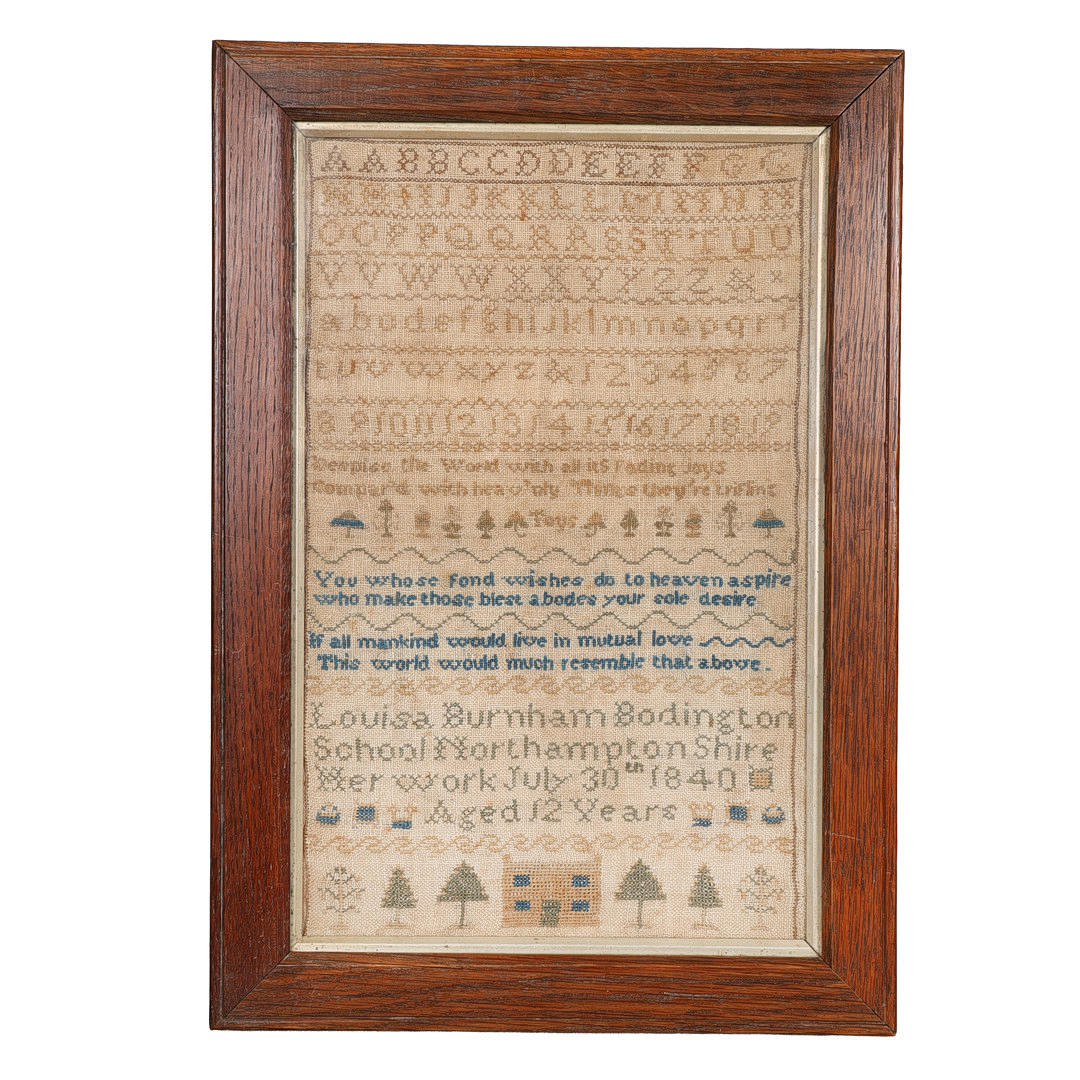 A A B B C C D D E E F F G G
H H I I J J K K L L M M N N
O O P P Q Q R R S S T T U U
V V W W X X Y Y Z Z & ×
a b c d e f g h i j k l m n o p q r s
t u v w x y z & 1 2 3 4 5 6 7
8 9 10 11 12 13 14 15 16 17 18 19
Despise the World with all its Fading Joys
Compar'd with heav'nly Things they're trifling
Toys
You whose fond wishes do to heaven aspire
who make those blest abodes your sole desire
If all mankind would live in mutual love
This world would much resemble that above.
Louisa Burnham Bodington
School Northampton Shire
Her work July 30th 1840
Aged 12 Years